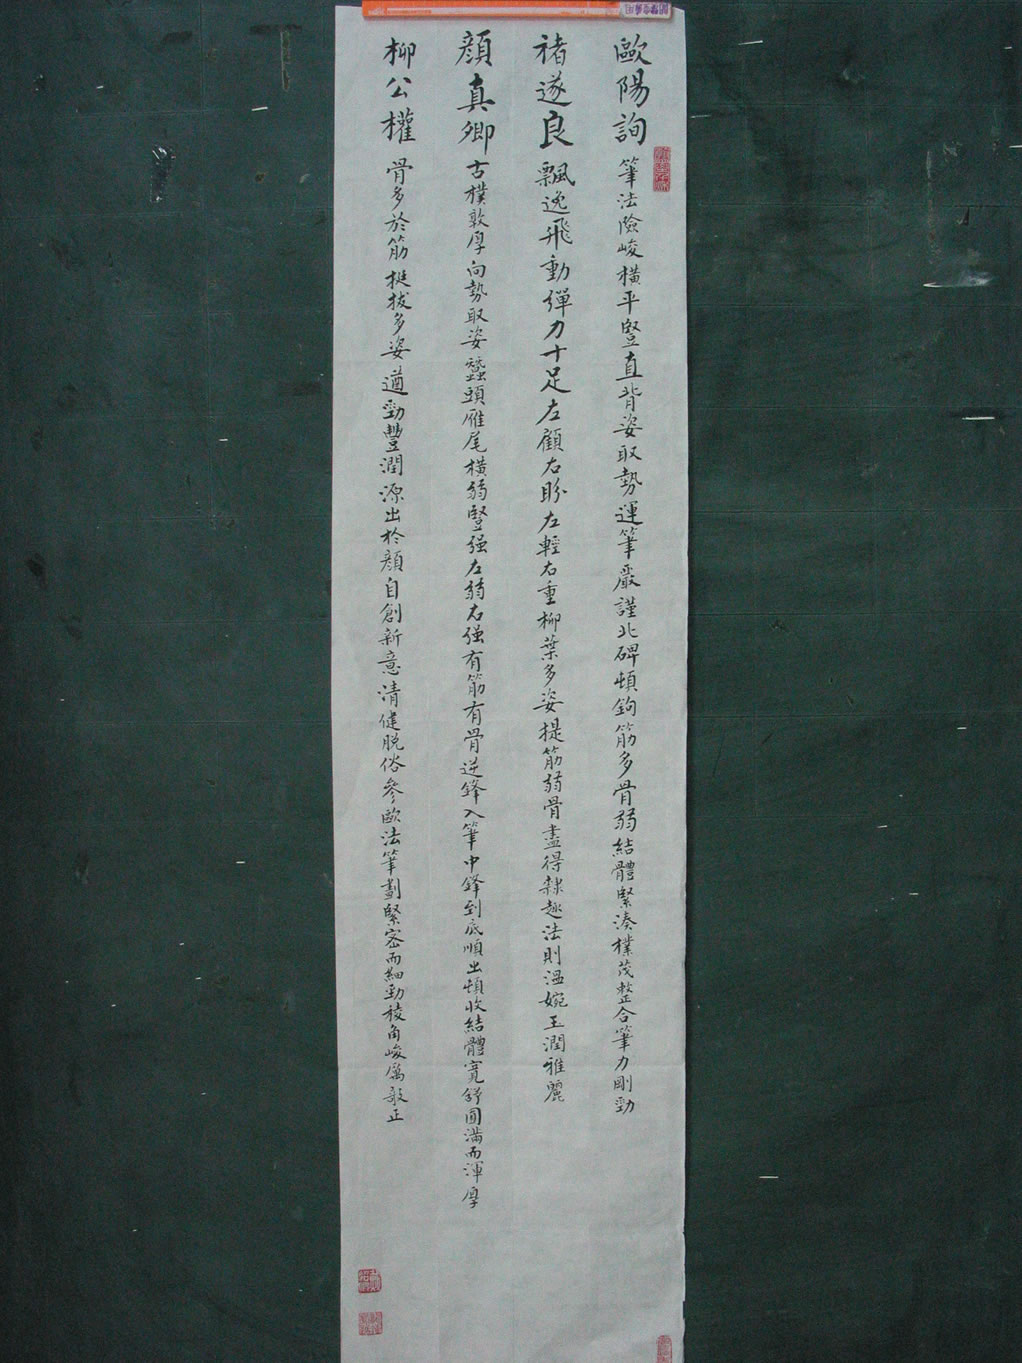 歐陽詢 筆法險峻橫平豎直背姿取勢運筆嚴謹北碑頓鉤筋多骨弱結體緊湊樸茂整合筆力剛勁
褚遂良 飄逸飛動彈力十足左顧右盼左輕右重柳葉多姿提筋弱骨盡得隸趣法則溫婉玉潤雅麗
顏真卿 古樸敦厚向勢取姿蠶頭雁尾橫弱豎强左弱右强有筋有骨逆鋒入筆中鋒到底順出頓收結體寬舒圓滿而渾厚
柳公權 骨多於筋挺拔多姿遒勁豐潤源出於顏自創新意清健脱俗參歐法筆劃緊密而細勁稜角峻厲嚴正